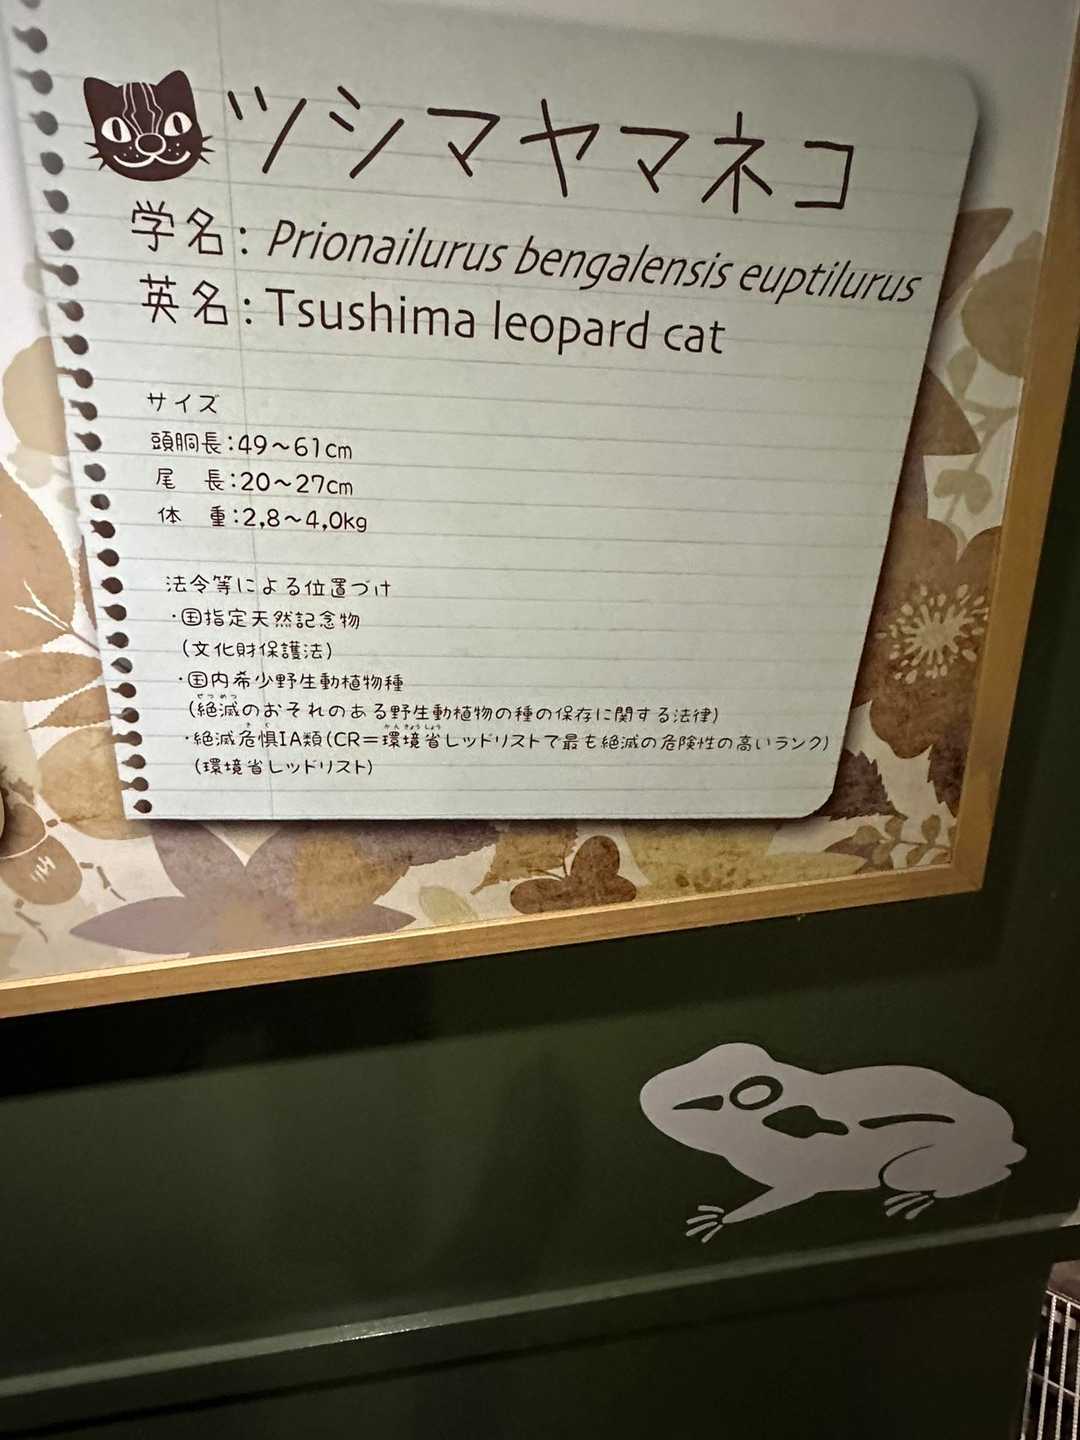 ツシマヤマネコ
学名：Prionailurus bengalensis euptilurus
英名：Tsushima leopard cat
サイズ
頭胴長：49～61cm
尾　長：20～27cm
体　重：2,8～4,0kg
法令等による位置づけ
・国指定天然記念物
（文化財保護法）
・国内希少野生動植物種
（絶滅のおそれのある野生動植物の種の保存に関する法律）
・絶滅危惧IA類（CR＝環境省レッドリストで最も絶滅の危険性の高いランク）
（環境省レッドリスト）